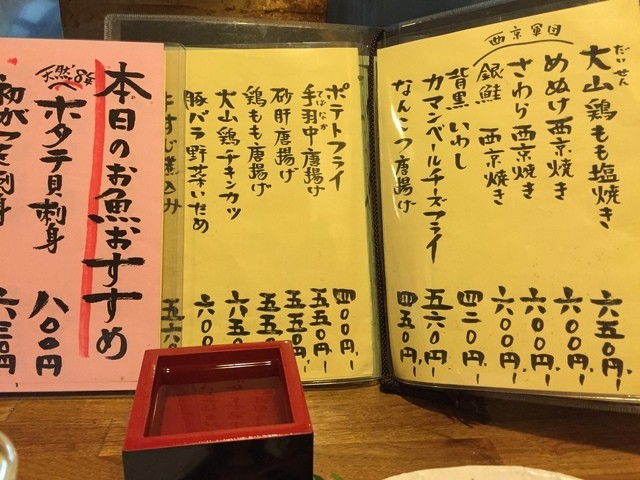 だいせん
大山鶏もも塩焼き 六五〇円
西京軍団
めぬけ西京焼き 六〇〇円
さわら西京焼き 六〇〇円
銀鮭 西京焼き 六〇〇円
背黒いわし 四二〇円
カマンベールチーズフライ 五六〇円
なんこつ唐揚げ 四五〇円
ポテトフライ 四〇〇円
てばなか
手羽中唐揚げ 五五〇円
砂肝唐揚げ 五五〇円
鶏もも唐揚げ 五五〇円
大山鶏チキンカツ 六五〇円
豚バラ野菜いため 六〇〇円
すじ煮込み 五六〇
本日のお魚おすすめ
天然
ホタテ貝刺身 八〇〇円
刺身 六三〇円